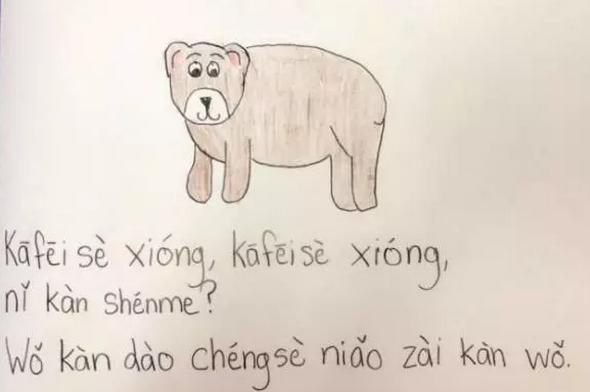 Kāfēi sè xióng, kāfēisè xióng,
nǐ kàn shénme?
Wǒ kàn dào chéngsè niǎo zài kàn wǒ.